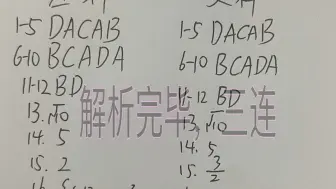 1-5 DACAB
6-10 BCADA
11-12 BD
13. √10
14. 5
15. 2
1-5 DACAB
6-10 BCADA
11-12 BD
13. √10
14. 5
15. 3/2
解析完毕,三连